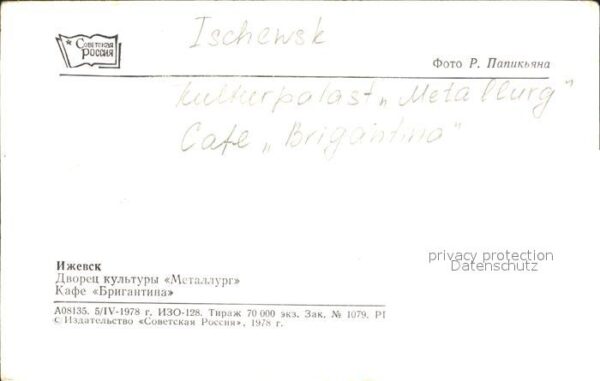 Советская
Россия
Ischewsk
Фото Р. Папикьяна
Kulturpalast „Metallurg"
Cafe „Brigantina"
privacy protection
Datenschutz
Ижевск
Дворец культуры «Металлург»
Кафе «Бригантина»
А08135. 5/IV-1978 г. ИЗО-128. Тираж 70 000 экз. Зак. № 1079. РІ
© Издательство «Советская Россия», 1978 г.